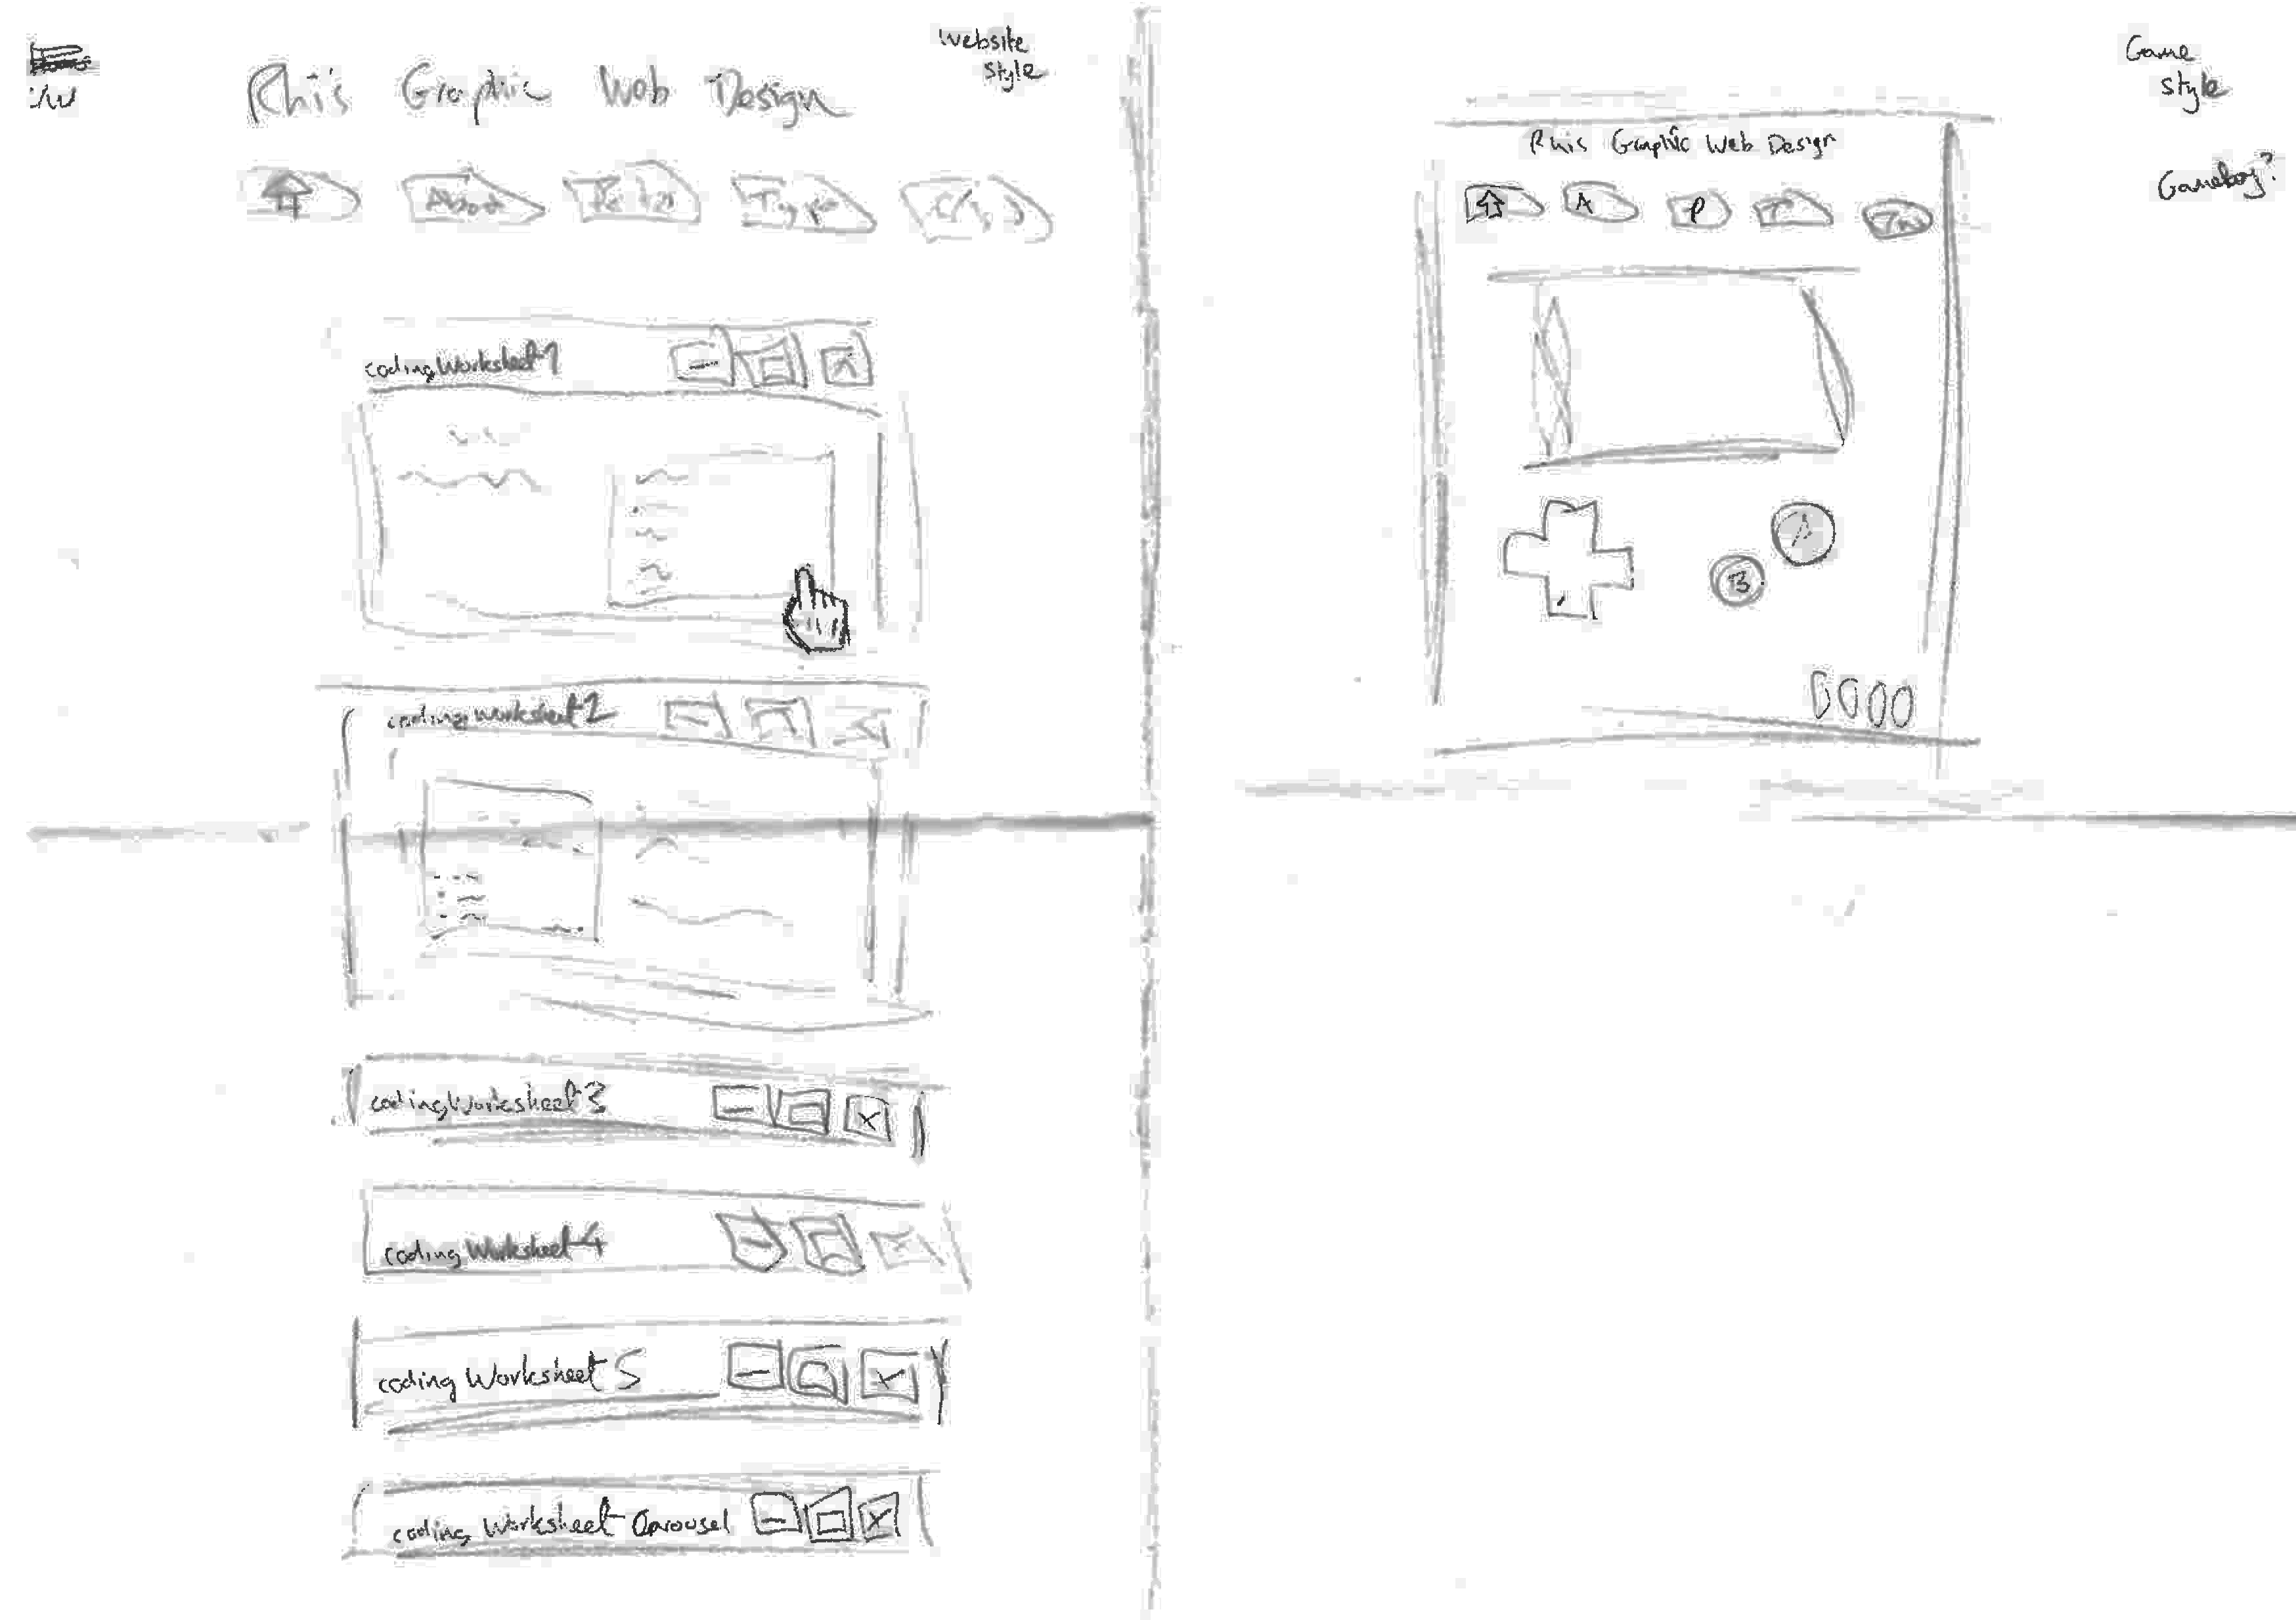 Website
style
Rhi's Graphic Web Design
About
codingWorksheet1
codingWorksheet2
codingWorksheet3
codingWorksheet4
codingWorksheet5
codingWorksheetCarousel
Game
style
Gameboy?
Rhis Graphic Web Design
A P T
A
B